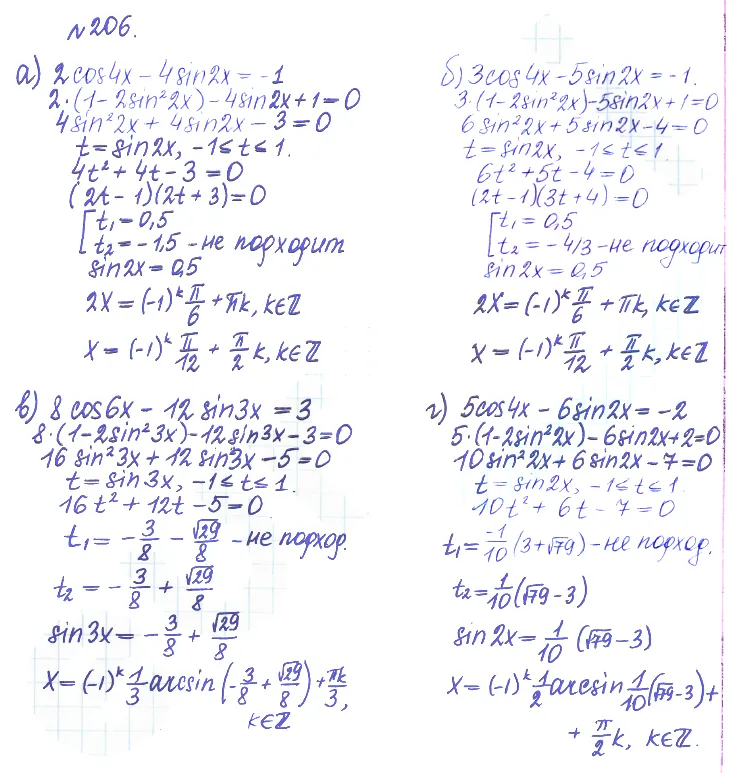 №206.
а) 2cos4x - 4sin2x = -1
2·(1-2sin²2x) - 4sin2x+1=0
4sin²2x + 4sin2x - 3 = 0
t = sin2x, -1≤t≤1.
4t² + 4t - 3 = 0
(2t - 1)(2t + 3)=0
[t₁=0,5
[t₂=-1,5 - не подходит
sin2x = 0,5
2x = (-1)ᵏ π/6 + πk, k∈ℤ
x = (-1)ᵏ π/12 + π/2 k, k∈ℤ
б) 3cos4x - 5sin2x = -1.
3·(1-2sin²2x)-5sin2x+1=0
6sin²2x+5sin2x-4=0
t = sin2x, -1≤t≤1
6t²+5t-4=0
(2t-1)(3t+4)=0
[t₁ = 0,5
[t₂ = -4/3 - не подходит
sin2x = 0,5
2x = (-1)ᵏ π/6 + πk, k∈ℤ
x = (-1)ᵏ π/12 + π/2 k, k∈ℤ
в) 8cos6x - 12sin3x = 3
8·(1-2sin²3x)-12sin3x-3=0
16sin²3x+12sin3x-5=0
t = sin3x, -1≤t≤1.
16t² + 12t - 5=0
t₁ = -3/8 - √29/8 - не подход.
t₂ = -3/8 + √29/8
sin3x = -3/8 + √29/8
x = (-1)ᵏ 1/3 arcsin(-3/8 + √29/8) + πk/3,
k∈ℤ
г) 5cos4x - 6sin2x = -2
5·(1-2sin²2x) - 6sin2x+2=0
10sin²2x+6sin2x-7=0
t = sin2x, -1≤t≤1.
10t² + 6t - 7 = 0
t₁ = -1/10 (3+√79) - не подход.
t₂ = 1/10 (√79-3)
sin2x = 1/10 (√79-3)
x = (-1)ᵏ 1/2 arcsin 1/10 (√79-3) +
+ π/2 k, k∈ℤ.